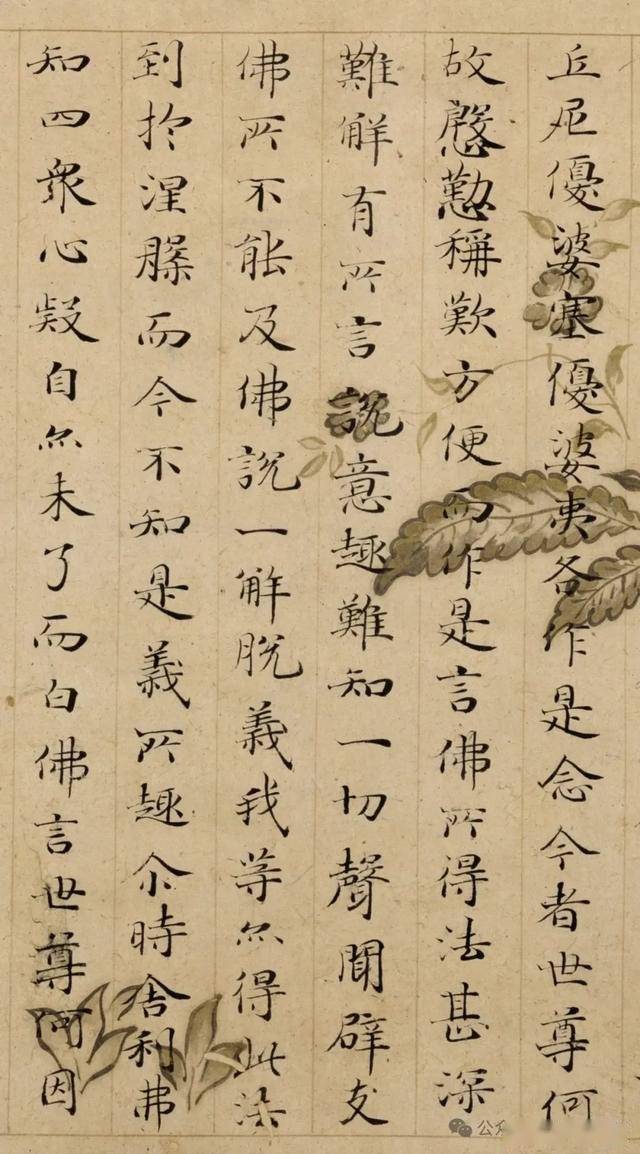 丘尼優婆塞優婆夷各作是念今者世尊何
故慇懃稱歎方便而作是言佛所得法甚深
難解有所言說意趣難知一切聲聞辟支
佛所不能及佛說一解脫義我等亦得此法
到於涅槃而今不知是義所趣尒時舍利弗
知四衆心疑自亦未了而白佛言世尊何因